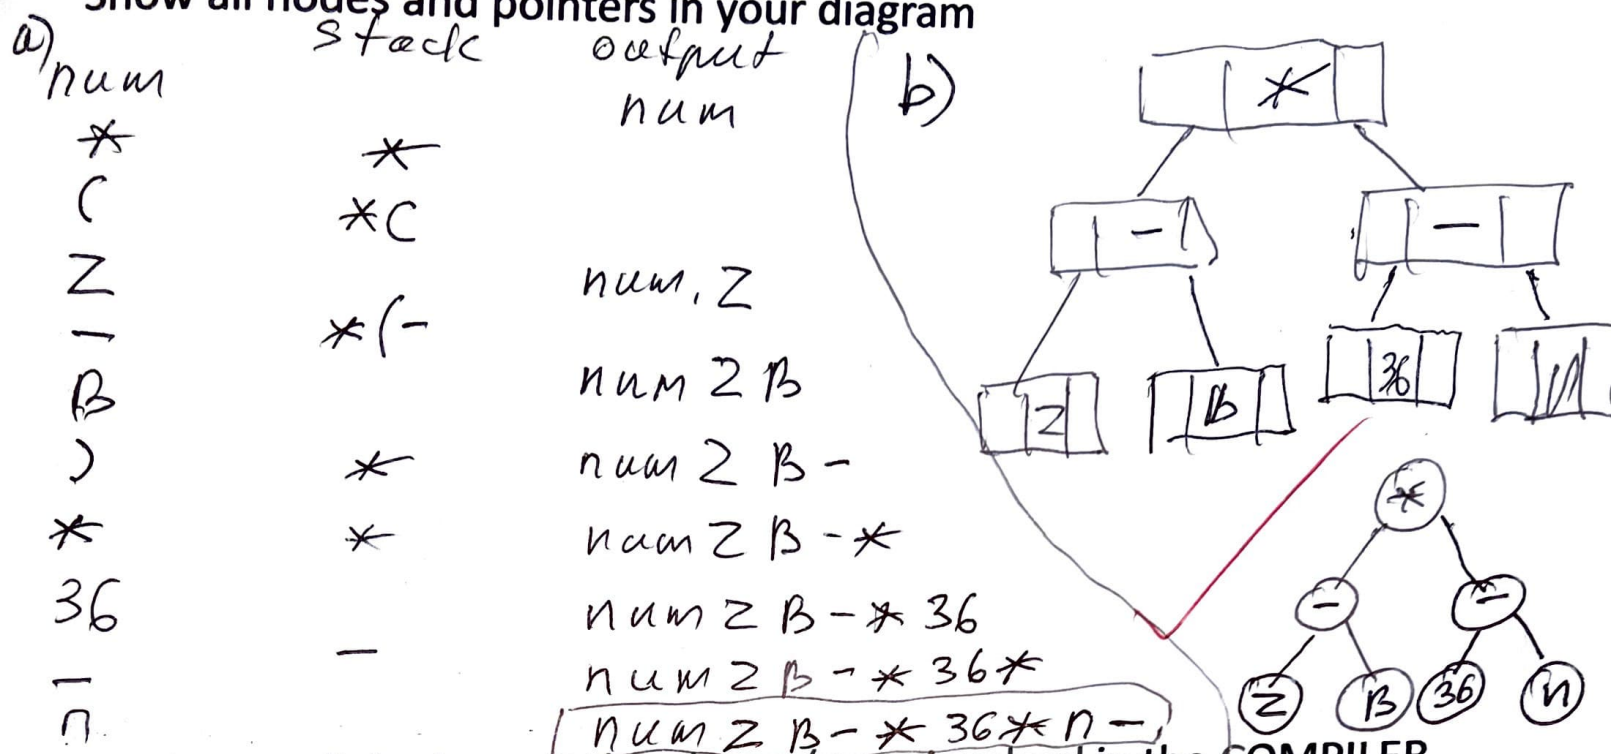 Show all nodes and pointers in your diagram
a) stack output
num num
* *
( *(
Z num, Z
- *(-
B num Z B
) * num Z B -
* * num Z B - *
36 num Z B - * 36
- - num Z B - * 36 *
n num Z B - * 36 * n -
b) *
- -
Z B 36 n
*
- -
Z B 36 n
in the COMPILER